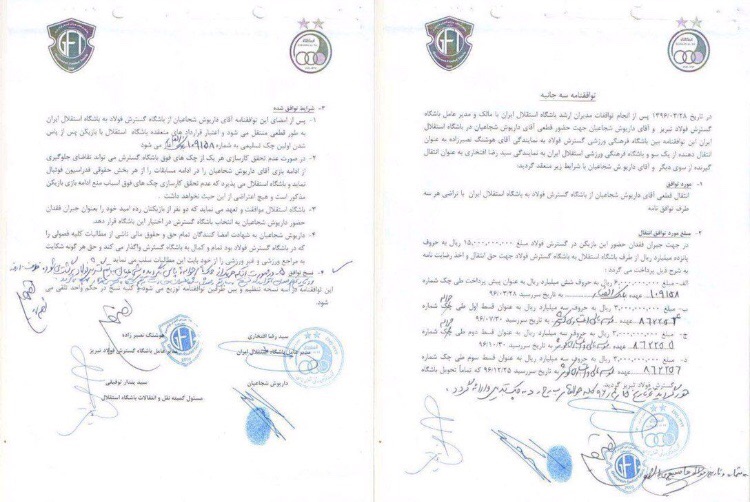 توافقنامه سه جانبه
در تاریخ ۱۳۹۶/۰۳/۲۸ پس از انجام توافقات مدیران ارشد باشگاه استقلال ایران با مالک و مدیر عامل باشگاه
گسترش فولاد تبریز و آقای داریوش شجاعیان جهت حضور قطعی آقای داریوش شجاعیان در باشگاه استقلال
ایران این توافقنامه بین باشگاه فرهنگی ورزشی گسترش فولاد به نمایندگی آقای هوشنگ نصیرزاده به عنوان
انتقال دهنده از یک سو و باشگاه فرهنگی ورزشی استقلال ایران به نمایندگی سید رضا افتخاری به عنوان انتقال
گیرنده از سوی دیگر و آقای داریوش شجاعیان با شرایط زیر منعقد گردید:
۱- مورد توافق
انتقال قطعی آقای داریوش شجاعیان از باشگاه گسترش فولاد به باشگاه استقلال ایران با تراضی هر سه
طرف توافق نامه
۲- مبلغ مورد توافق انتقال
در جهت جبران فقدان حضور این بازیکن در گسترش فولاد مبلغ ۱۵,۰۰۰,۰۰۰,۰۰۰ ریال به حروف
پانزده میلیارد ریال از طرف باشگاه استقلال به باشگاه گسترش فولاد جهت حق انتقال و اخذ رضایت نامه
به شرح ذیل پرداخت می گردد:
الف- مبلغ ۶,۰۰۰,۰۰۰,۰۰۰ ریال به حروف شش میلیارد ریال به عنوان پیش پرداخت طی چک شماره
۱۰۹۱۵۸ عهده بانک به تاریخ سررسید ۹۶/۰۳/۲۸
ب- مبلغ ۳,۰۰۰,۰۰۰,۰۰۰ ریال به حروف سه میلیارد ریال به عنوان قسط اول طی چک شماره
عهده به تاریخ سررسید ۹۶/۰۷/۳۰
ج- مبلغ ۳,۰۰۰,۰۰۰,۰۰۰ ریال به حروف سه میلیارد ریال به عنوان قسط دوم طی چک شماره
عهده به تاریخ سررسید ۹۶/۱۰/۳۰
د- مبلغ ۳,۰۰۰,۰۰۰,۰۰۰ ریال به حروف سه میلیارد ریال به عنوان قسط سوم طی چک شماره
۸۶۲۲۵۶ عهده به تاریخ سررسید ۹۶/۱۲/۲۵ که تماماً تحویل باشگاه
گسترش فولاد تبریز گردید.
۳- شرایط توافق شده
۱- پس از امضای این توافقنامه آقای داریوش شجاعیان از باشگاه گسترش فولاد به باشگاه استقلال ایران
به طور قطعی منتقل می شود و اعتبار قرارداد های منعقده باشگاه استقلال با بازیکن پس از پاس
شدن اولین چک تسلیمی به شماره ۱۰۹۱۵۸ می شود
۲- در صورت عدم تحقق کارسازی هر یک از چک های فوق باشگاه گسترش می تواند تقاضای جلوگیری
از ادامه بازی آقای داریوش شجاعیان را در ادامه مسابقات را از هر بخش حقوقی فدراسیون فوتبال
نماید و باشگاه استقلال می پذیرد که عدم تحقق کارسازی چک های فوق اسباب منع ادامه بازی بازیکن
مذکور است و هیچ اعتراضی از این حیث نخواهد داشت.
۳- باشگاه استقلال موافقت و تعهد می نماید که دو نفر از بازیکنان رده امید خود را بعنوان جبران فقدان
حضور داریوش شجاعیان به انتخاب باشگاه گسترش در اختیار این باشگاه قرار دهد.
۴- داریوش شجاعیان به شهادت امضا کنندگان تمام حق و حقوق مالی ناشی از مطالبات کلیه فصولی را
که در باشگاه گسترش فولاد بود تمام و کمال به باشگاه گسترش واگذار می کند و حق هر گونه شکایت
به مراجع ورزشی و غیر ورزشی را از خود بابت این مطالبات سلب می نماید.
۵- نسخ توافق
این توافقنامه در سه نسخه تنظیم و بین طرفین توافقنامه توزیع می شود و کلیه نسخ در حکم واحد تلقی می
شود.
سید رضا افتخاری
مدیر عامل باشگاه استقلال ایران
هوشنگ نصیر زاده
مدیر عامل باشگاه گسترش فولاد تبریز
داریوش شجاعیان
سید پندار توفیقی
مسئول کمیته نقل و انتقالات باشگاه استقلال